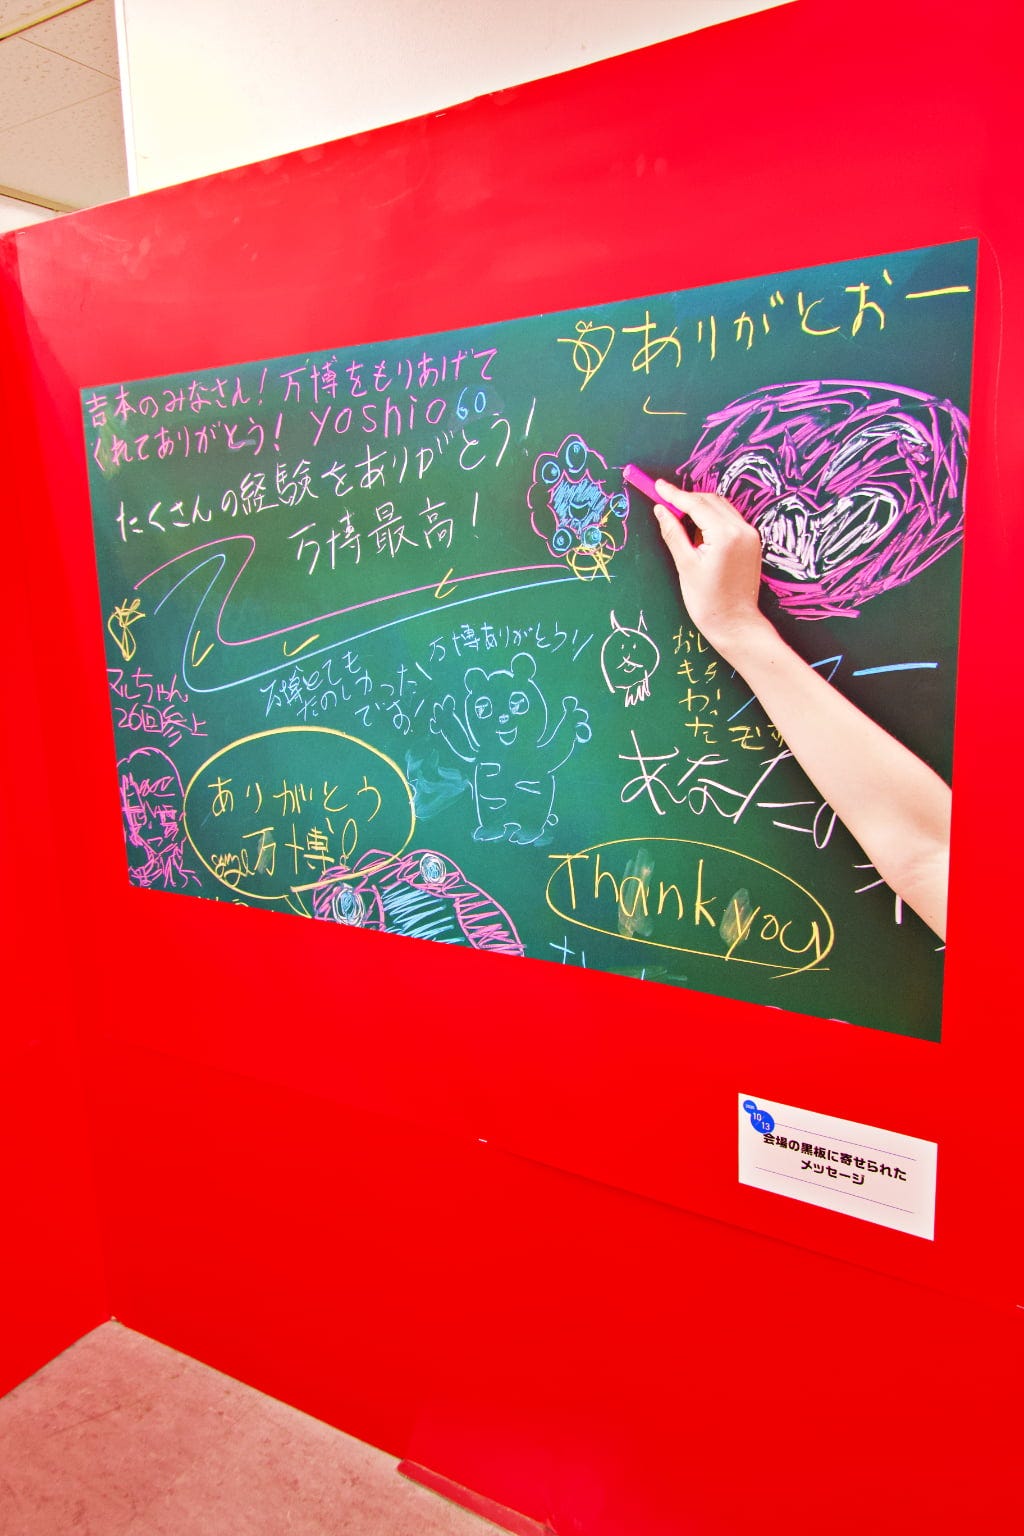 ありがとおー
吉本のみなさん！万博をもりあげて
くれてありがとう！yoshio60
たくさんの経験をありがとう！
万博最高！
万博ありがとう!!
万博とても
たのしかった
でお！
マルちゃん
26回参上
おし
もち
わっ
た
あなた
ミー
ありがとう
万博
Thank you
2025
10/13
会場の黒板に寄せられた
メッセージ